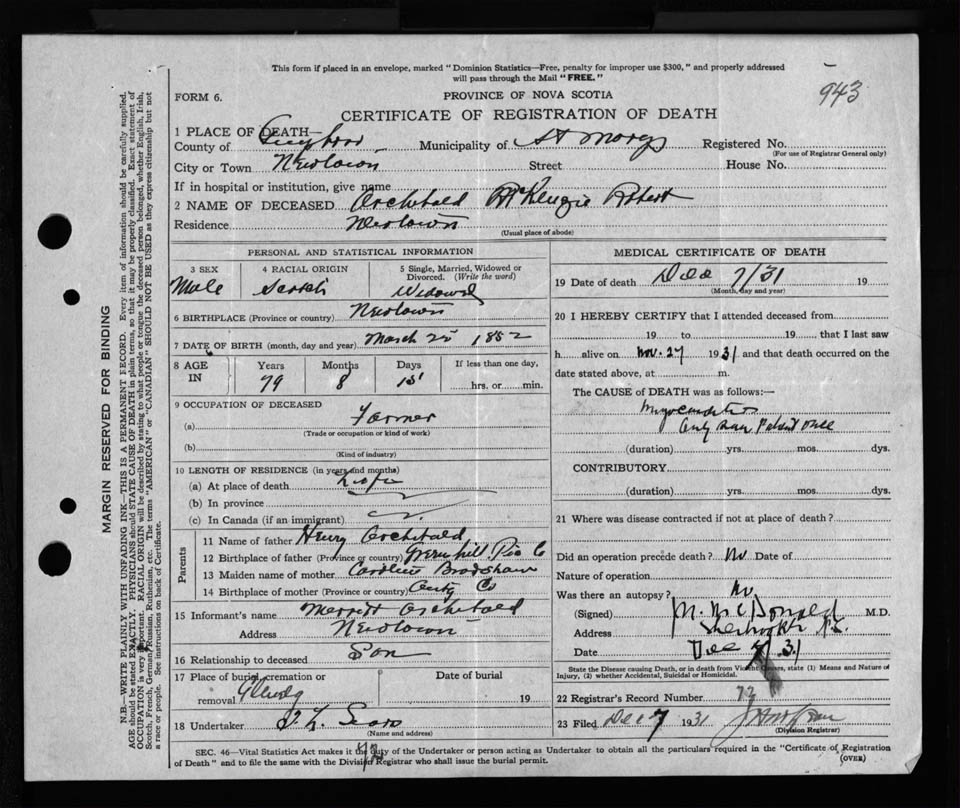 This form if placed in an envelope, marked "Dominion Statistics—Free, penalty for improper use $300," and properly addressed
will pass through the Mail "FREE."
943
FORM 6.
PROVINCE OF NOVA SCOTIA
CERTIFICATE OF REGISTRATION OF DEATH
1 PLACE OF DEATH—
County of Municipality of St Marys Registered No.
(For use of Registrar General only)
City or Town Newtown Street House No.
If in hospital or institution, give name
2 NAME OF DECEASED Archibald McKenzie Robert
Residence Newtown
(Usual place of abode)
PERSONAL AND STATISTICAL INFORMATION
3 SEX 4 RACIAL ORIGIN 5 Single, Married, Widowed or Divorced. (Write the word)
Male Scotch Widowed
6 BIRTHPLACE (Province or country) Newtown
7 DATE OF BIRTH (month, day and year) March 1852
8 AGE IN Years Months Days If less than one day,
79 8 hrs. or min.
9 OCCUPATION OF DECEASED
(a) Farmer
(Trade or occupation or kind of work)
(b)
(Kind of industry)
10 LENGTH OF RESIDENCE (in years and months)
(a) At place of death Life
(b) In province
(c) In Canada (if an immigrant)
Parents
11 Name of father Henry Archibald
12 Birthplace of father (Province or country) Greenhill Pic Co
13 Maiden name of mother Caroline Bradshaw
14 Birthplace of mother (Province or country) Co
15 Informant's name Merritt Archibald
Address Newtown
16 Relationship to deceased Son
17 Place of burial, cremation or Date of burial
removal 19
18 Undertaker
(Name and address)
MEDICAL CERTIFICATE OF DEATH
19 Date of death Dec 7/31 19
(Month, day and year)
20 I HEREBY CERTIFY that I attended deceased from
19 to 19 that I last saw
h alive on Nov. 27 1931 and that death occurred on the
date stated above, at m.
The CAUSE of DEATH was as follows:—
Myocarditis
Only saw Patient once
(duration) yrs. mos. dys.
CONTRIBUTORY
(duration) yrs. mos. dys.
21 Where was disease contracted if not at place of death?
Did an operation precede death? No Date of
Nature of operation
Was there an autopsy? No.
(Signed) M. McDonald M.D.
Address Sherbrooke N.S.
Date Dec 31
State the Disease causing Death, or in death from Violent Causes, state (1) Means and Nature of
Injury, (2) whether Accidental, Suicidal or Homicidal.
22 Registrar's Record Number 72
23 Filed Dec 7 1931
(Division Registrar)
SEC. 46—Vital Statistics Act makes it the duty of the Undertaker or person acting as Undertaker to obtain all the particulars required in the "Certificate of Registration
of Death" and to file the same with the Division Registrar who shall issue the burial permit.
(OVER)
MARGIN RESERVED FOR BINDING
N.B.—WRITE PLAINLY WITH UNFADING INK—THIS IS A PERMANENT RECORD. Every item of information should be carefully supplied.
AGE should be stated EXACTLY. PHYSICIANS should STATE CAUSE OF DEATH in plain terms, so that it may be properly classified. Exact statement of
OCCUPATION is very important. RACIAL ORIGIN will be described by stating to what people or tongue the deceased person belonged, whether English, Irish,
Scotch, French, German, Russian, Ruthenian, etc. The terms "AMERICAN" or "CANADIAN" SHOULD NOT BE USED as they express citizenship but not
a race or people. See instructions on back of Certificate.